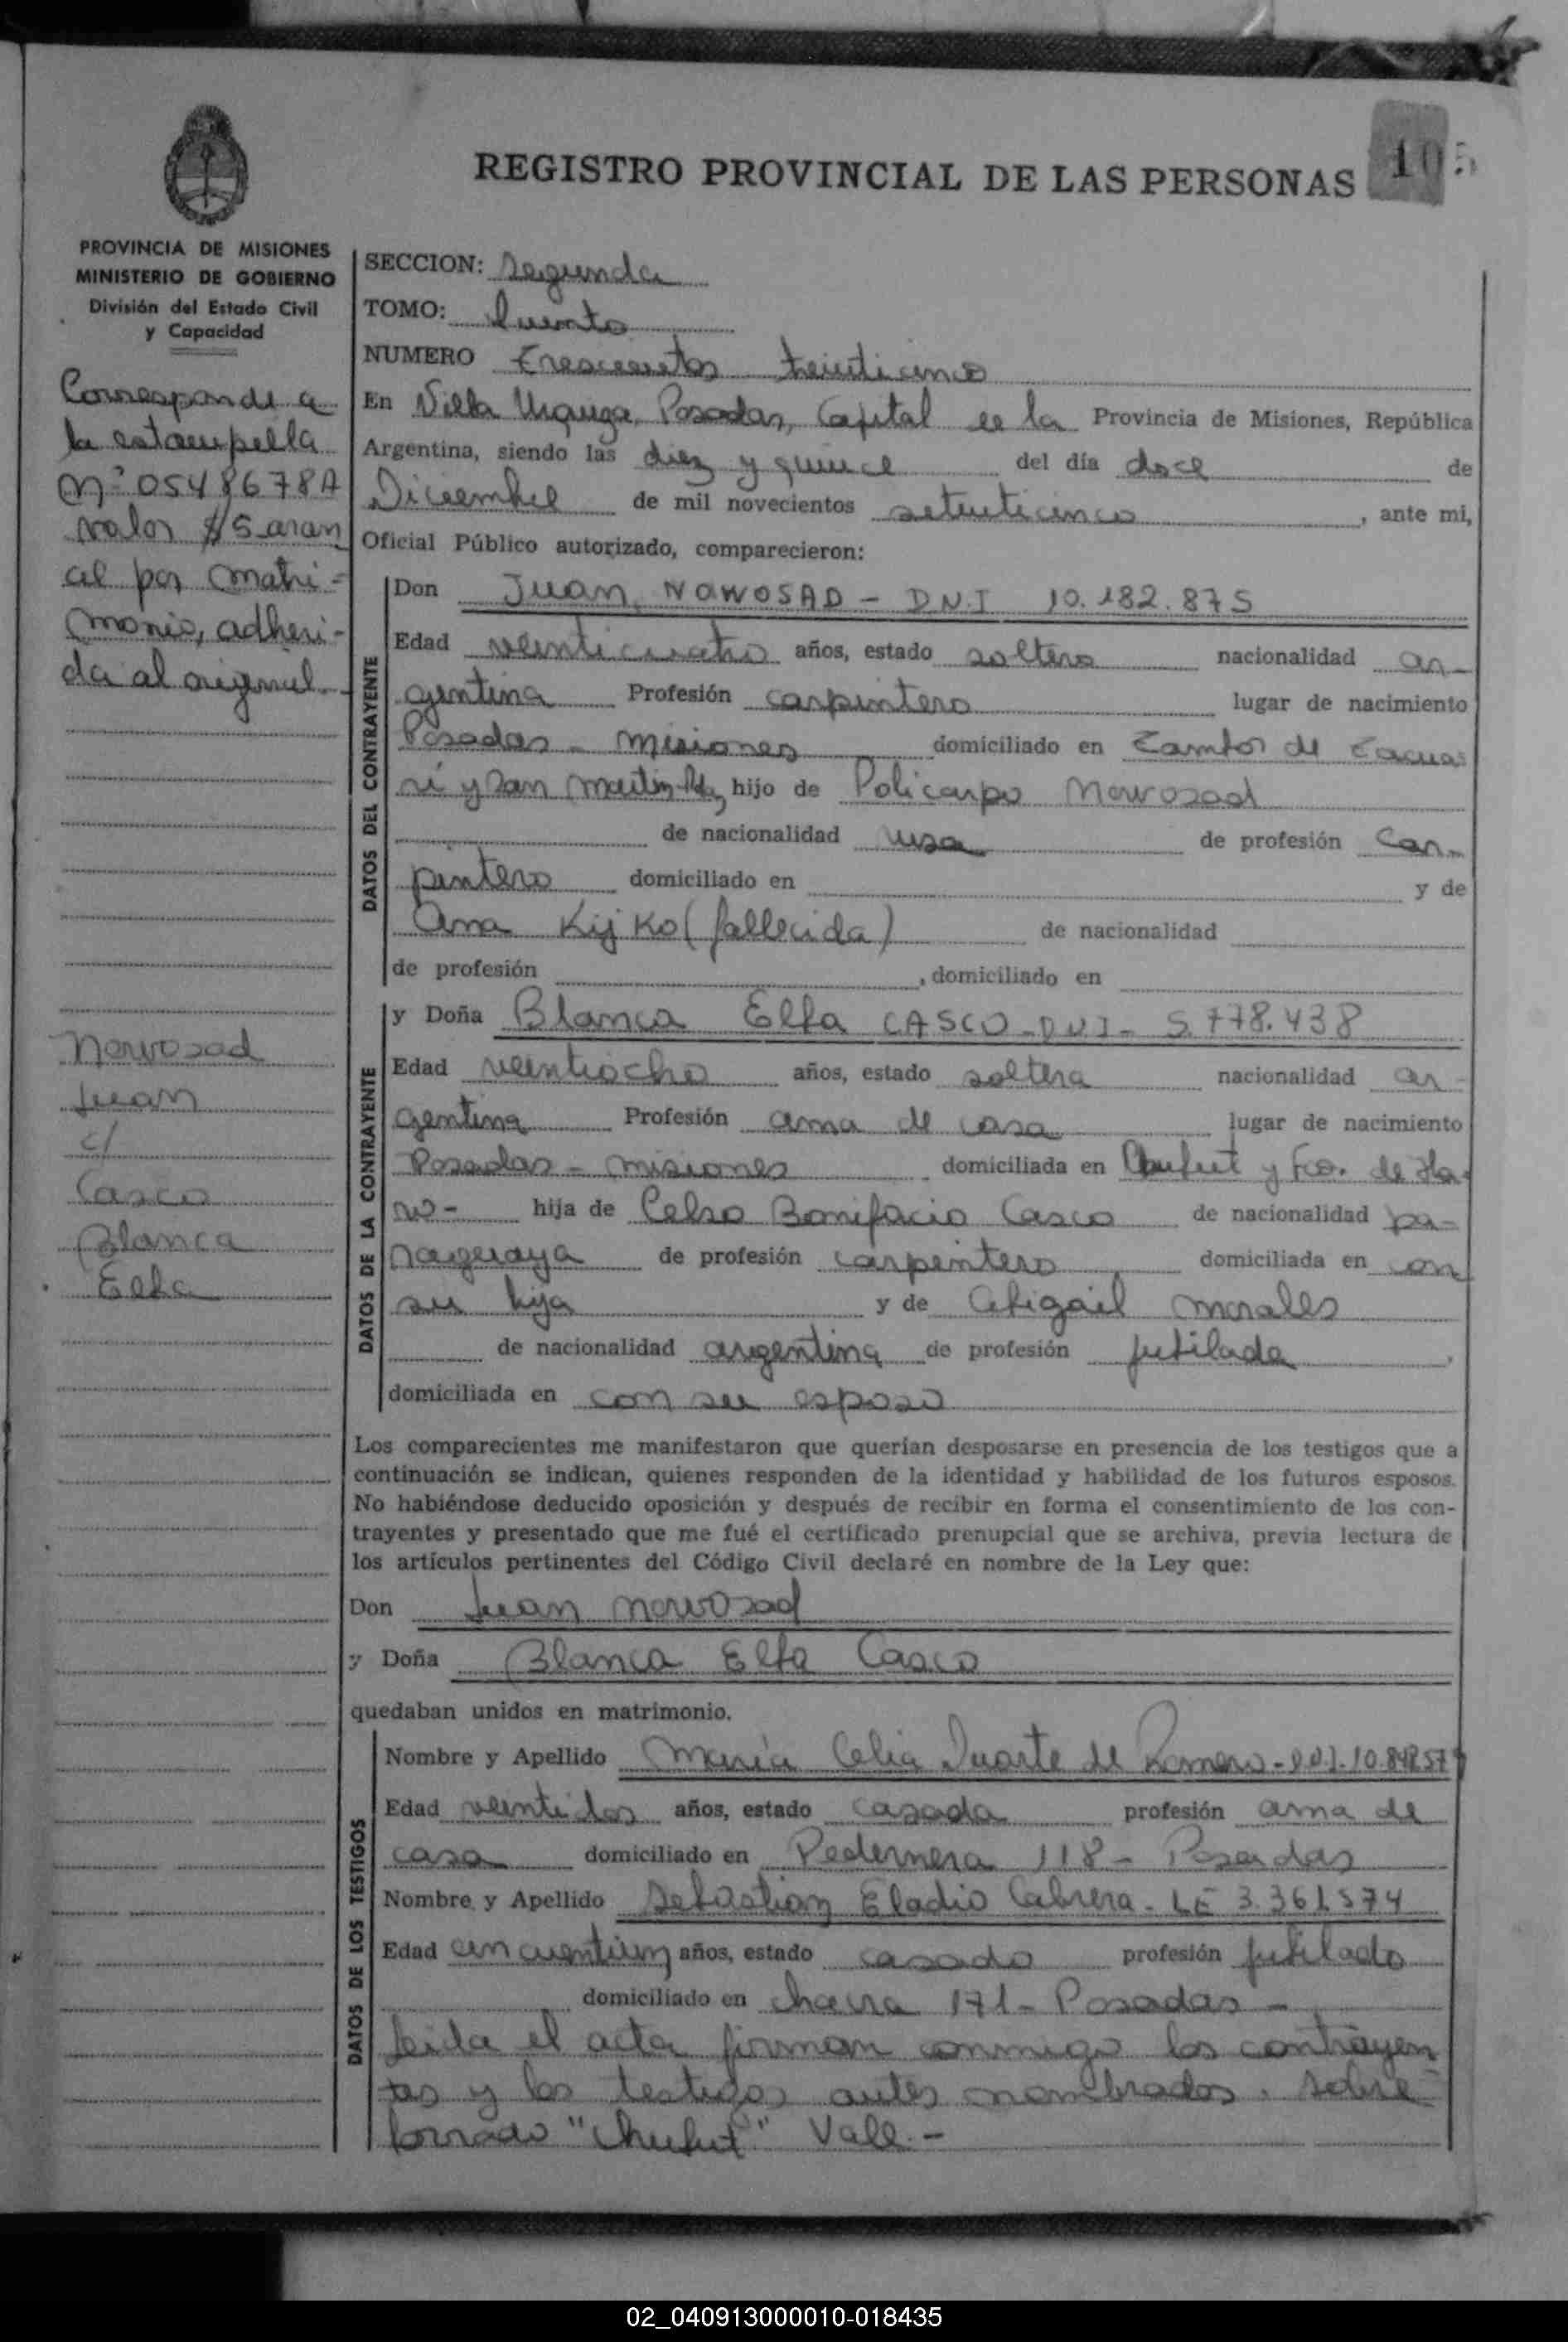 REGISTRO PROVINCIAL DE LAS PERSONAS
105
PROVINCIA DE MISIONES
MINISTERIO DE GOBIERNO
División del Estado Civil
y Capacidad
Corresponde a
la estampilla
Nº 0548678A
valor $5 aran
cel por matri-
monio, adheri-
da al original.
Nowosad
Juan
c/
Casco
Blanca
Elba
SECCION: Segunda
TOMO: Cuarto
NUMERO Trescientos treinticinco
En Villa Urquiza, Posadas, Capital de la Provincia de Misiones, República
Argentina, siendo las diez y quince del día doce de
Diciembre de mil novecientos setenticinco, ante mi,
Oficial Público autorizado, comparecieron:
DATOS DEL CONTRAYENTE
Don Juan NOWOSAD - DNI 10.182.875
Edad veinticuatro años, estado soltero nacionalidad ar-
gentina Profesión carpintero lugar de nacimiento
Posadas - Misiones domiciliado en Tambor de Tacua
rí y San Martín, hijo de Policarpo Nowosad
de nacionalidad rusa de profesión Car-
pintero domiciliado en y de
Ana Kijko (fallecida) de nacionalidad
de profesión , domiciliado en
DATOS DE LA CONTRAYENTE
y Doña Blanca Elba CASCO - DNI - 5.778.438
Edad veintiocho años, estado soltera nacionalidad ar-
gentina Profesión ama de casa lugar de nacimiento
Posadas - Misiones domiciliada en Chubut y Fco. de Ha-
ro - hija de Celso Bonifacio Casco de nacionalidad pa-
raguaya de profesión carpintero domiciliada en con
su hija y de Abigail Morales
de nacionalidad argentina de profesión jubilada,
domiciliada en con su esposo
Los comparecientes me manifestaron que querían desposarse en presencia de los testigos que a
continuación se indican, quienes responden de la identidad y habilidad de los futuros esposos.
No habiéndose deducido oposición y después de recibir en forma el consentimiento de los con-
trayentes y presentado que me fué el certificado prenupcial que se archiva, previa lectura de
los artículos pertinentes del Código Civil declaré en nombre de la Ley que:
Don Juan Nowosad
y Doña Blanca Elba Casco
quedaban unidos en matrimonio.
DATOS DE LOS TESTIGOS
Nombre y Apellido María Celia Duarte de Romero - DNI.
Edad veintidos años, estado casada profesión ama de
casa domiciliado en Pedernera 118 - Posadas
Nombre y Apellido Sebastian Eladio Cabrera - LE 3.361.574
Edad cincuentiun años, estado casado profesión jubilado
domiciliado en chacra 171 - Posadas -
Leida el acta firman conmigo los contrayen
tes y los testigos antes nombrados. Sobre
borrado "Chubut" Vale. -
02_040913000010-018435